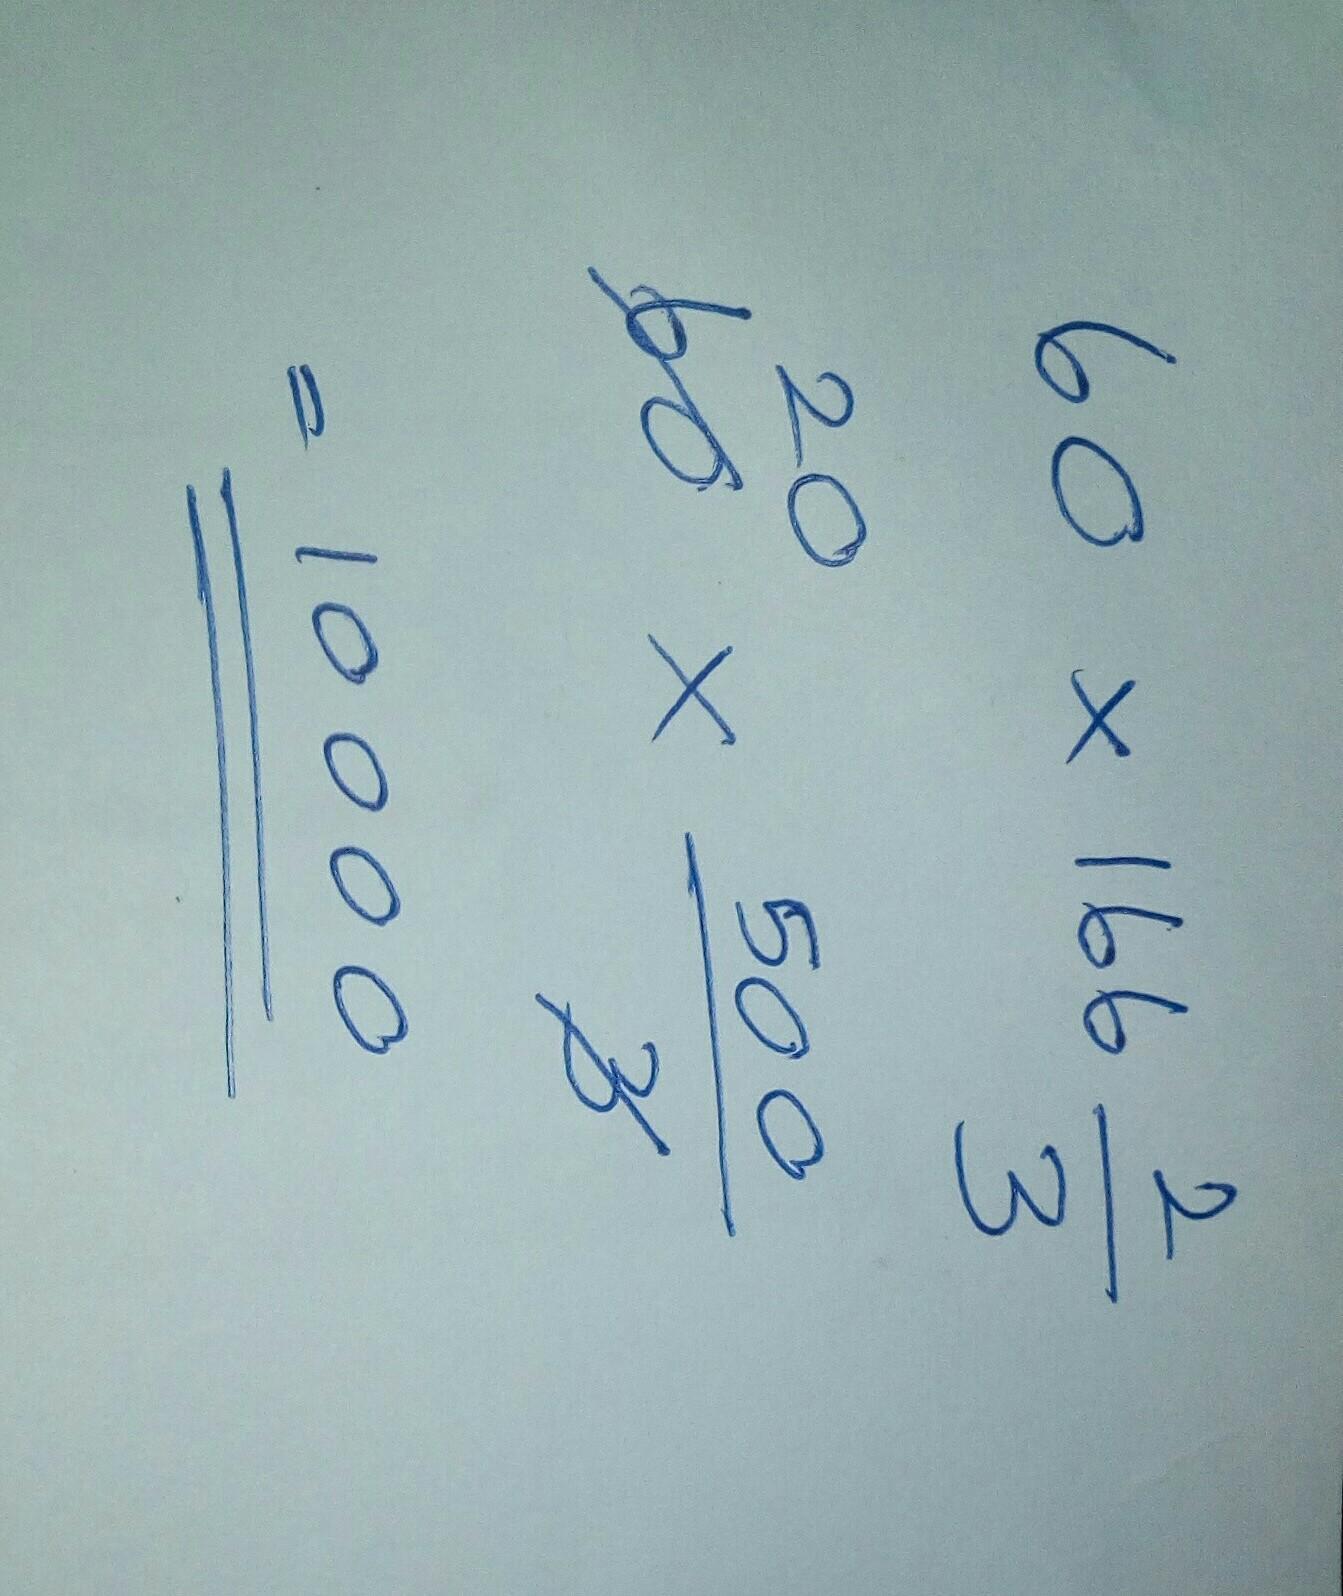 60 × 166 2/3
20
60 × 500/3
= 10000